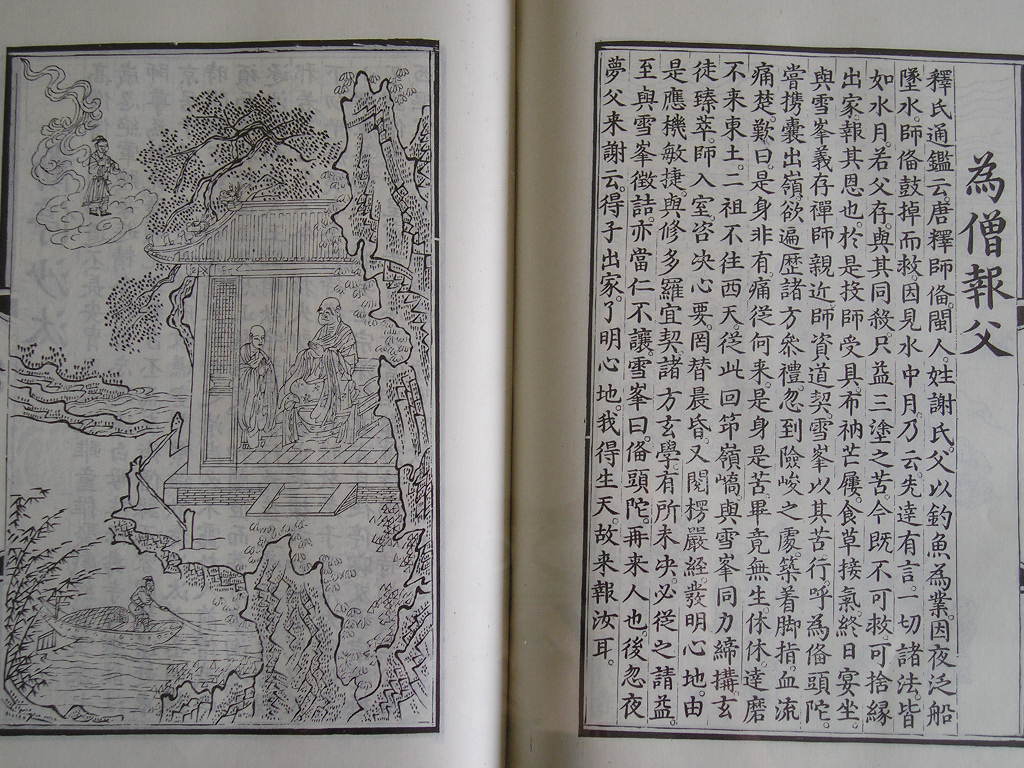 為僧報父
釋氏通鑑云。唐釋師俻。閩人。姓謝氏。父以釣魚為業。因夜泛船
墜水。師俻鼓棹而救。因見水中月。乃云。先達有言。一切諸法。皆
如水月。若父存。與其同殺。只益三塗之苦。今既不可救。可捨緣
出家。報其恩也。於是投師受具。布衲芒屨。食草接氣。終日宴坐。
與雪峯義存禪師。親近師資道契。雪峯以其苦行。呼為俻頭陀。
嘗携囊出嶺。欲遍歷諸方叅禮。忽到險峻之處。築着脚指。血流
痛楚。歎曰。是身非有。痛從何来。是身是苦。畢竟無生。休休。達磨
不来東土。二祖不往西天。從此回笻嶺嶠。與雪峯同力締搆。玄
徒臻萃。師入室咨决心要。罔替晨昏。又閱楞嚴經。發明心地。由
是應機敏捷。與修多羅冝契。諸方玄學。有所未决。必從之請益。
至與雪峯徵詰。亦當仁不讓。雪峯曰。俻頭陀。再来人也。後忽夜
夢父来謝云。得子出家。了明心地。我得生天。故来報汝耳。